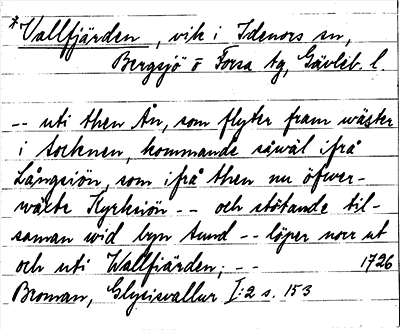 *Vallfjärden, vik i Idenors sn,
Bergsjö o Forsa tg, Gävleb. l.
-- uti then Ån, som flyter fram wäster
i socknen, kommande såwäl ifrå
Långsiön, som ifrå then nu öfwer-
wäxte Kyrksiön -- och stötande til-
saman wid byn Sund -- löper norr ut
och uti Wallfiärden; -- 1726
Broman, Glysisvallur I:2 s. 153